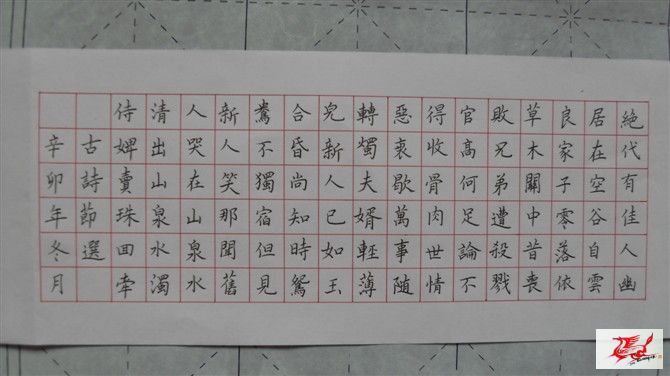 絶代有佳人幽
居在空谷自雲
良家子零落依
草木關中昔喪
敗兄弟遭殺戮
官高何足論不
得收骨肉世情
惡衰歇萬事随
轉燭夫婿輕薄
兒新人已如玉
合昏尚知時鴛
鴦不獨宿但見
新人笑那聞舊
人哭在山泉水
清出山泉水濁
侍婢賣珠回牽
古詩節選
辛卯年冬月